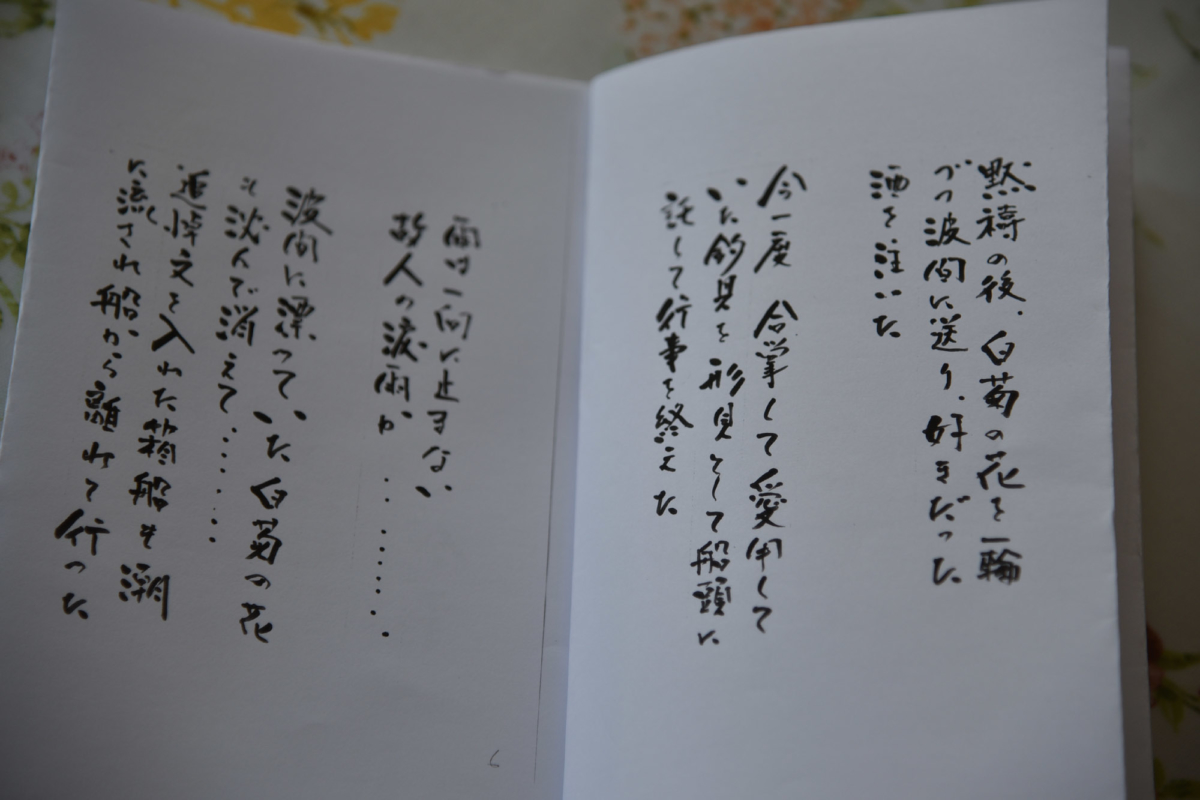 黙祷の後、白菊の花を一輪
づつ波間に送り、好きだった
酒を注いだ
今一度 合掌して愛用して
いた釣具を形見として船頭に
託して行事を終えた
雨は一向に止まない
故人の涙雨か‥‥‥‥
波間に漂っていた白菊の花
も沈んで消えて‥‥‥
追悼文を入れた箱船も潮
に流され船から離れて行った
6